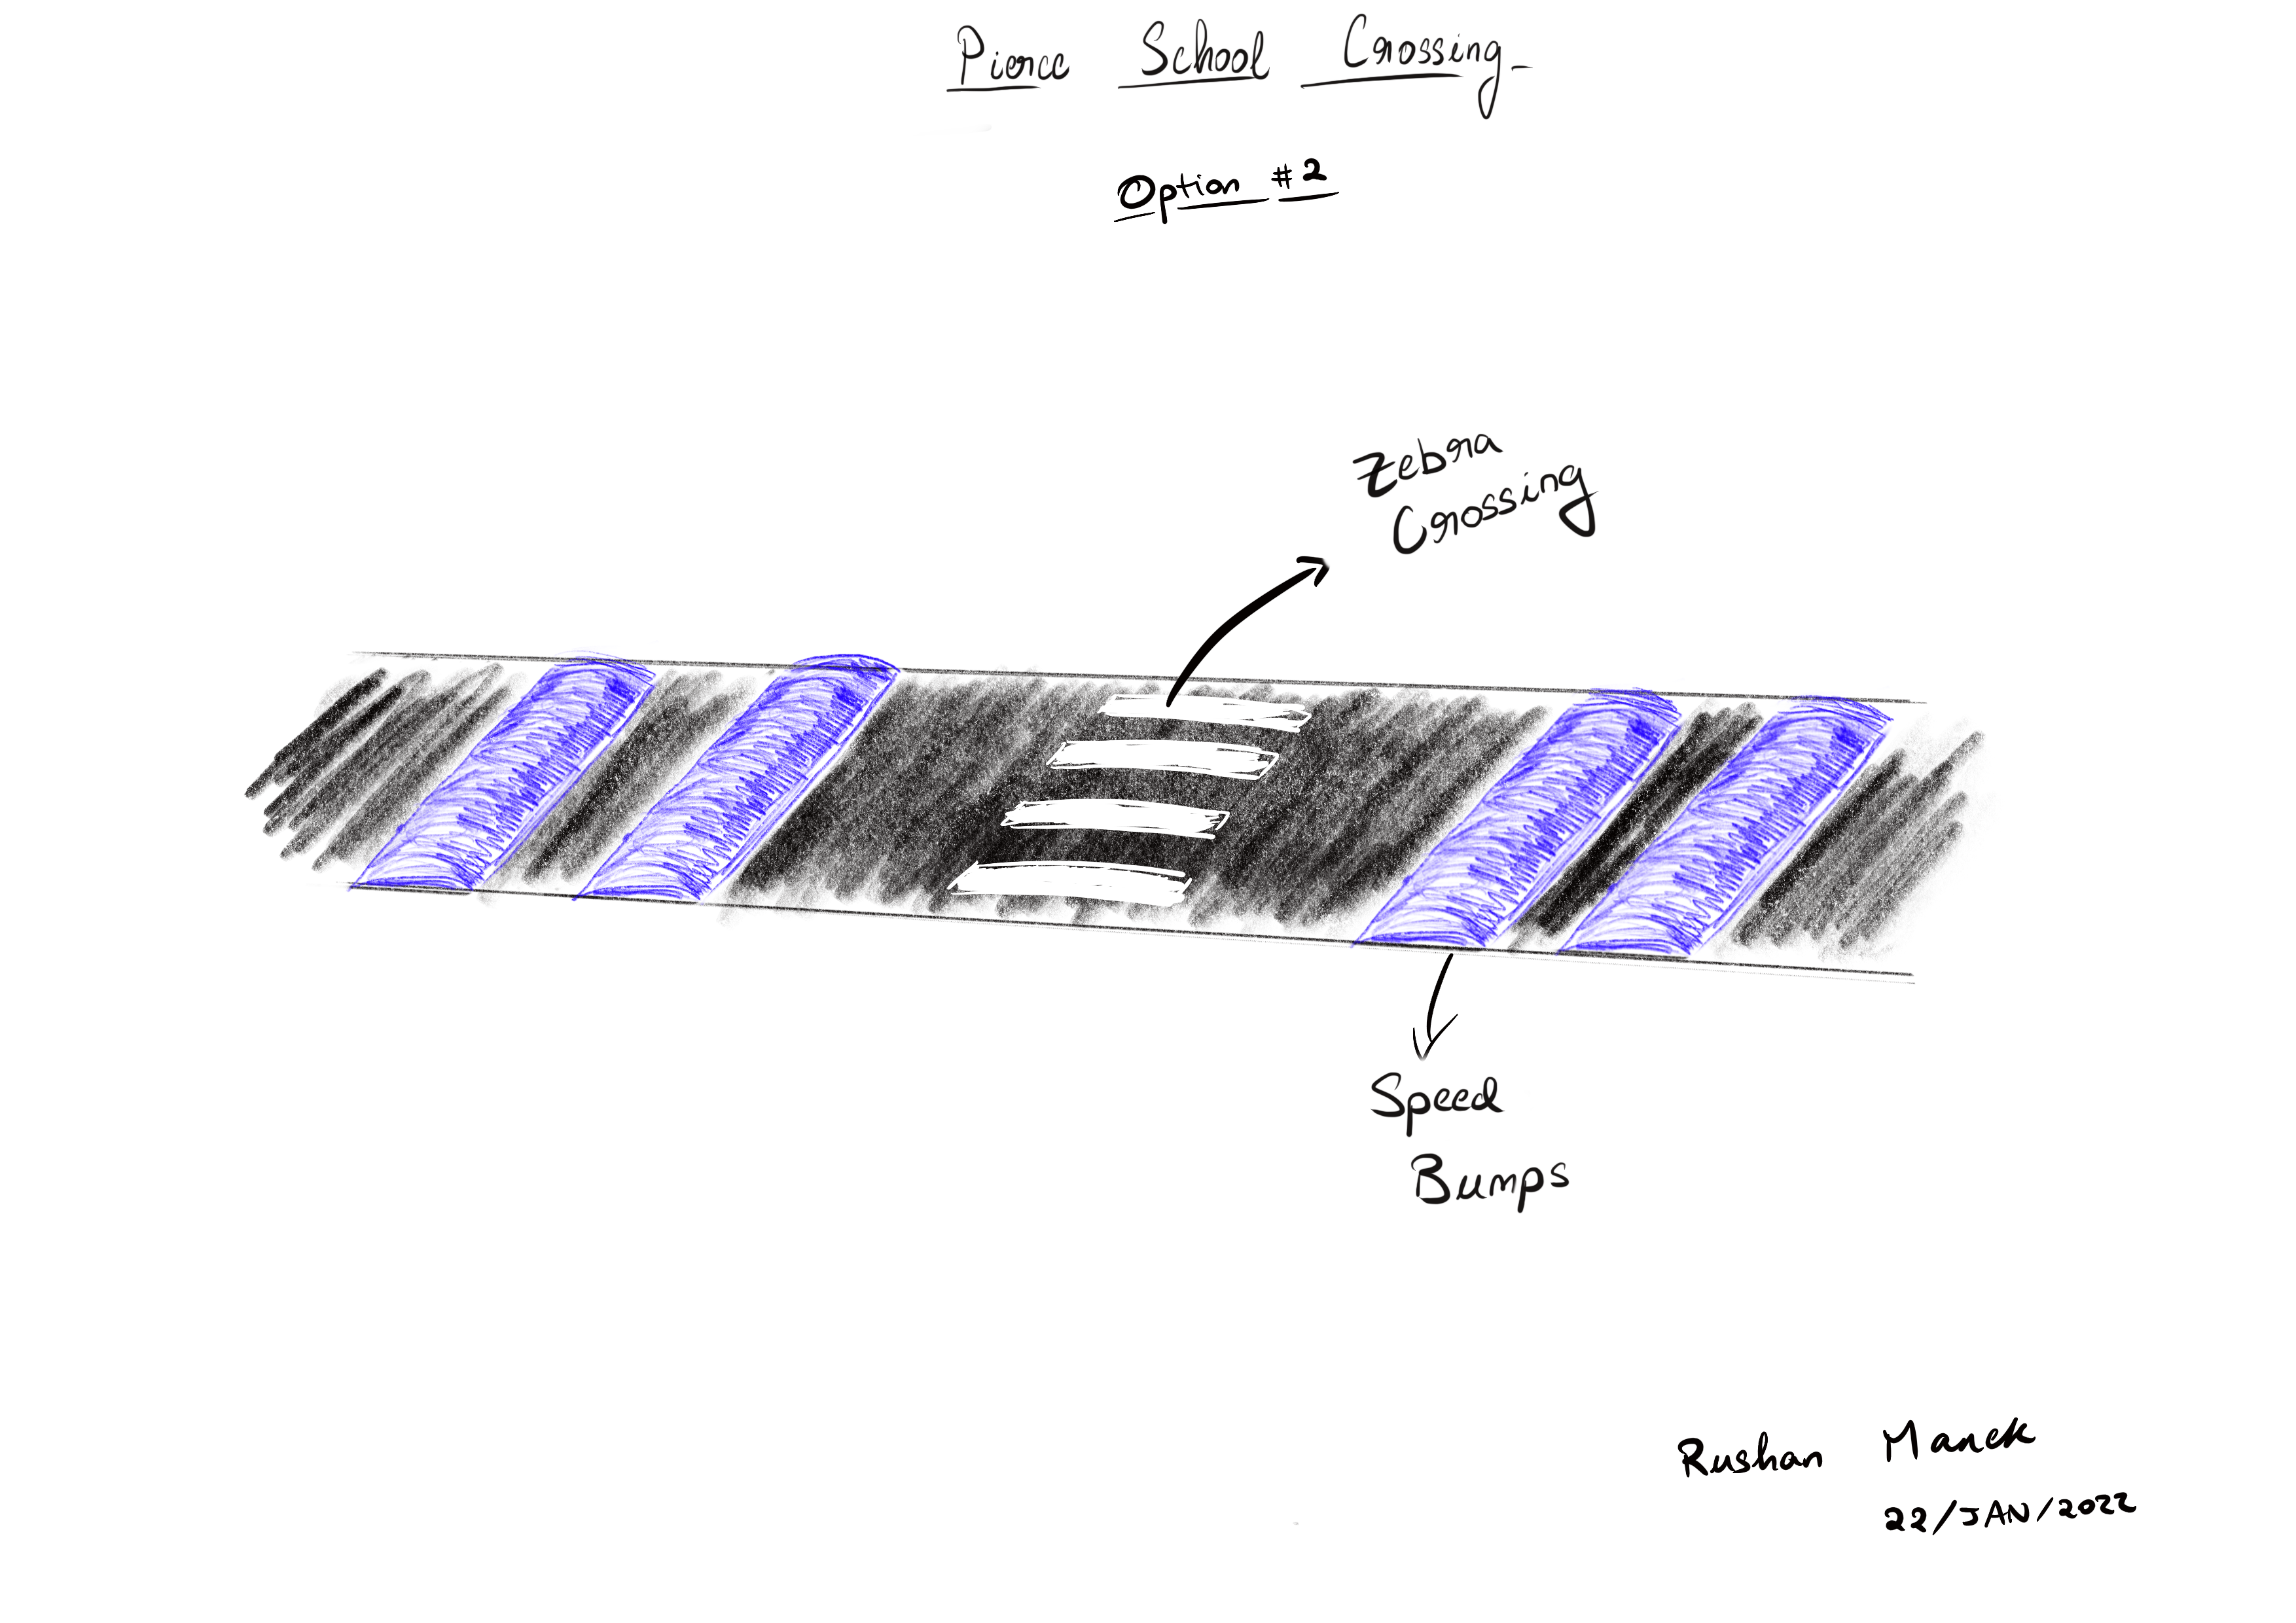 Pierce School Crossing
Option #2
Zebra
Crossing
Speed
Bumps
Rushan Manek
22/JAN/2022